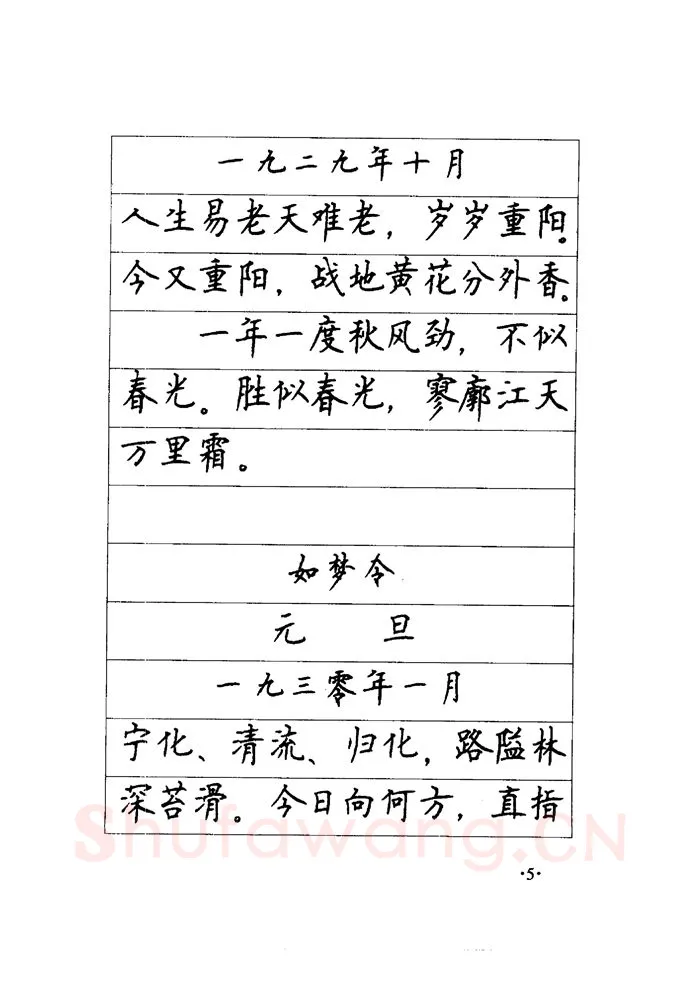 一九二九年十月
人生易老天难老，岁岁重阳。
今又重阳，战地黄花分外香。
一年一度秋风劲，不似
春光。胜似春光，寥廓江天
万里霜。
如梦令
元 旦
一九三零年一月
宁化、清流、归化，路隘林
深苔滑。今日向何方，直指
Shufawang.CN
·5·